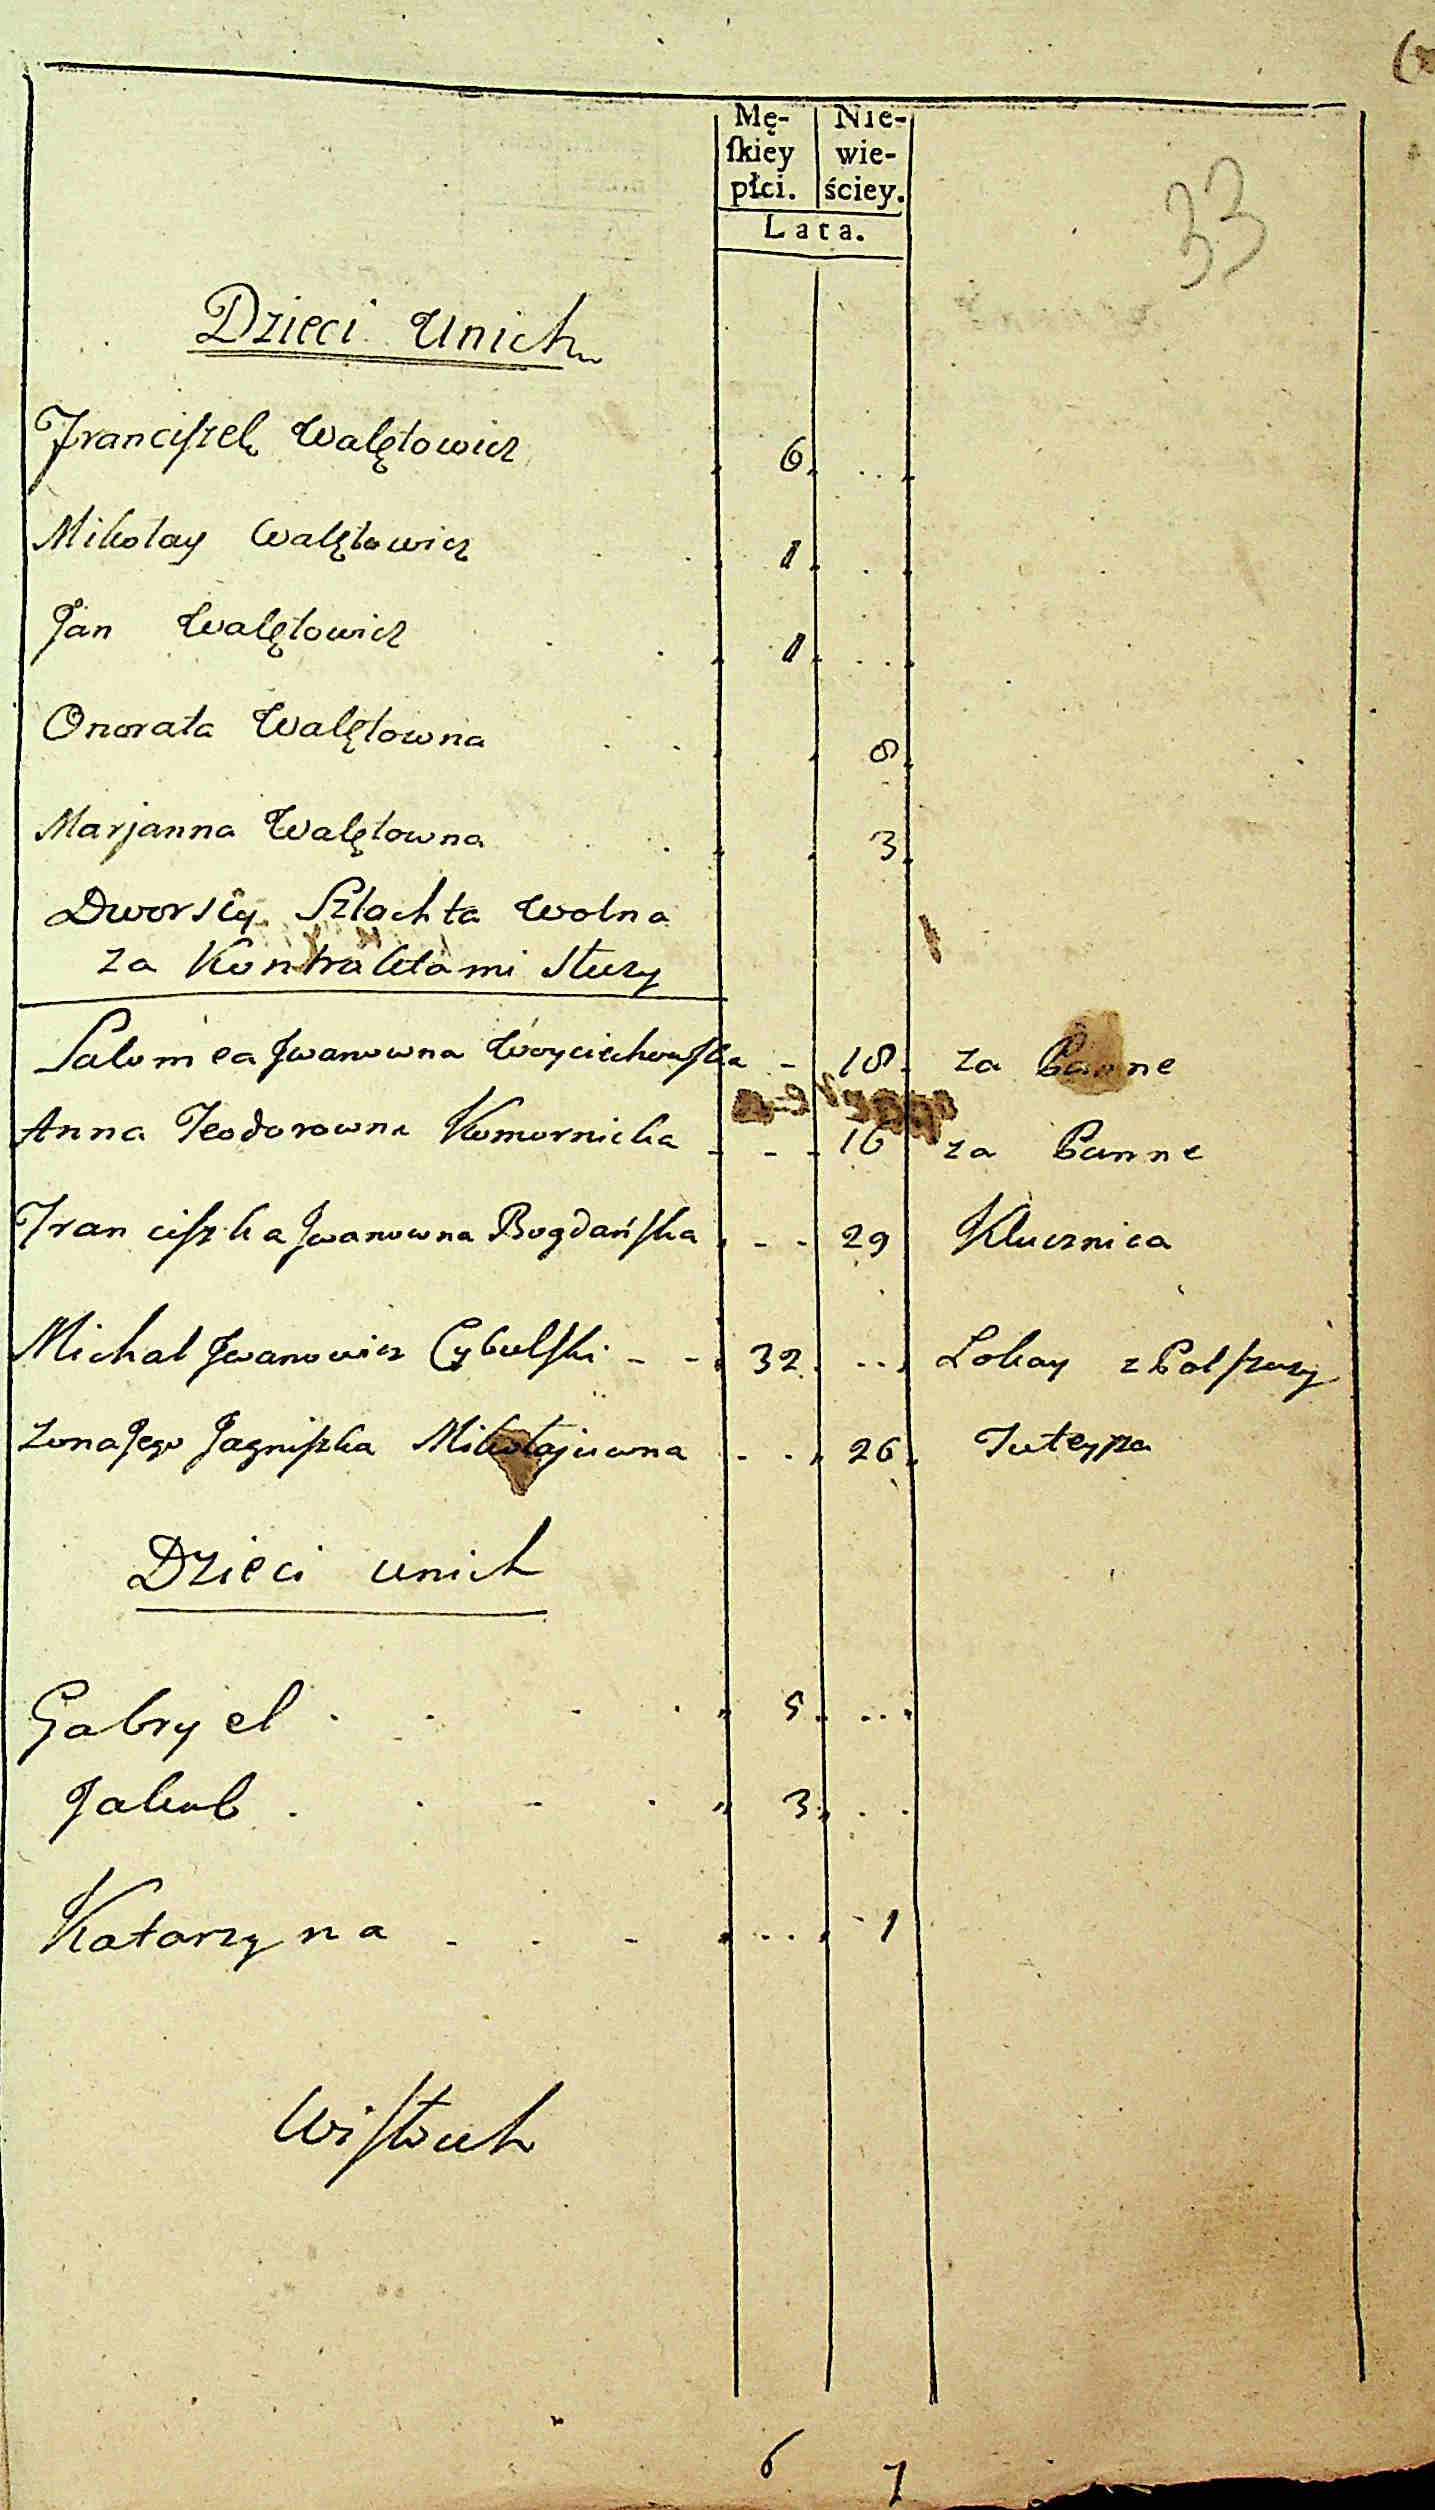 Mę- Nie-
ſkiey wie-
płci. ściey.
Lata.
33
Dzieci Unich
Franciſzek Walętowicz 6
Mikołay Walętowicz 1
Jan Walętowicz 1
Onorata Walętowna 8
Marjanna Walętowna 3
Dworscy Szlachta Wolna
za Kontraktami Służy
Salomea Jwanowna Woyciechowſka 18 za Panne
Anna Teodorowna Komornicka 16 za Panne
Franciſzka Jwanowna Bogdańſka 29 Klucznica
Michał Jwanowicz Cybulſki 32 Lokay z Polſzczy
zona Jego Jagniſzka Mikołajowna 26 Tuteysza
Dzieci unich
Gabryel 5
Jakub 3
Katarzyna 1
6 7